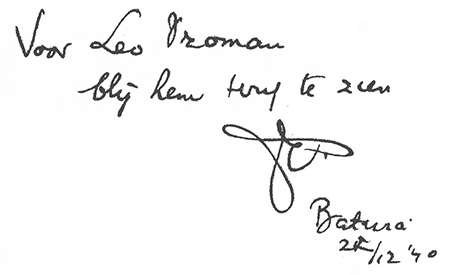 Voor Leo Vroman
blij hem terug te zien
Batavia
12/'40